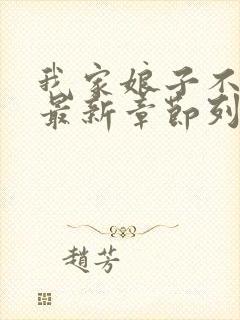 我家娘子不
最新章節列
趙芳